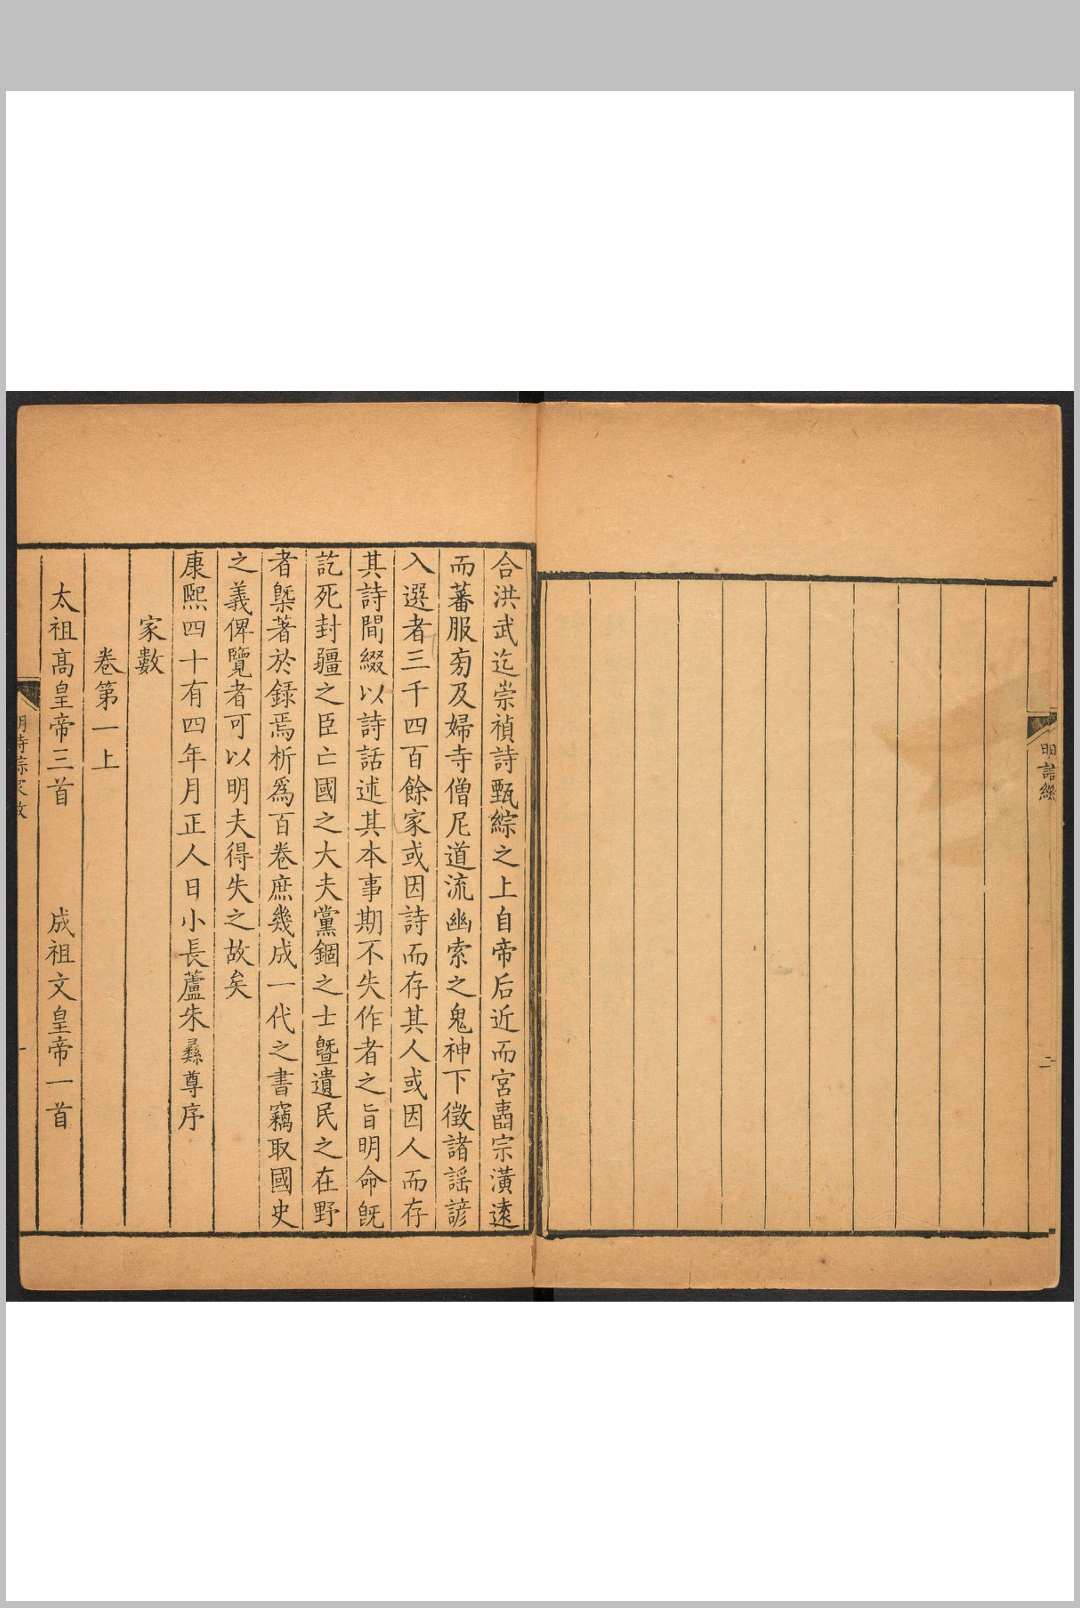 明詩綜
二
合洪武迄崇禎詩甄綜之上自帝后近而宮壼宗潢遠
而蕃服旁及婦寺僧尼道流幽索之鬼神下徵諸謡諺
入選者三千四百餘家或因詩而存其人或因人而存
其詩間綴以詩話述其本事期不失作者之旨明命旣
訖死封疆之臣亡國之大夫黨錮之士曁遺民之在野
者槩著於錄焉析爲百卷庶幾成一代之書竊取國史
之義俾覽者可以明夫得失之故矣
康熙四十有四年月正人日小長蘆朱彝尊序
家數
卷第一上
太祖高皇帝三首 成祖文皇帝一首
明詩綜家數
一